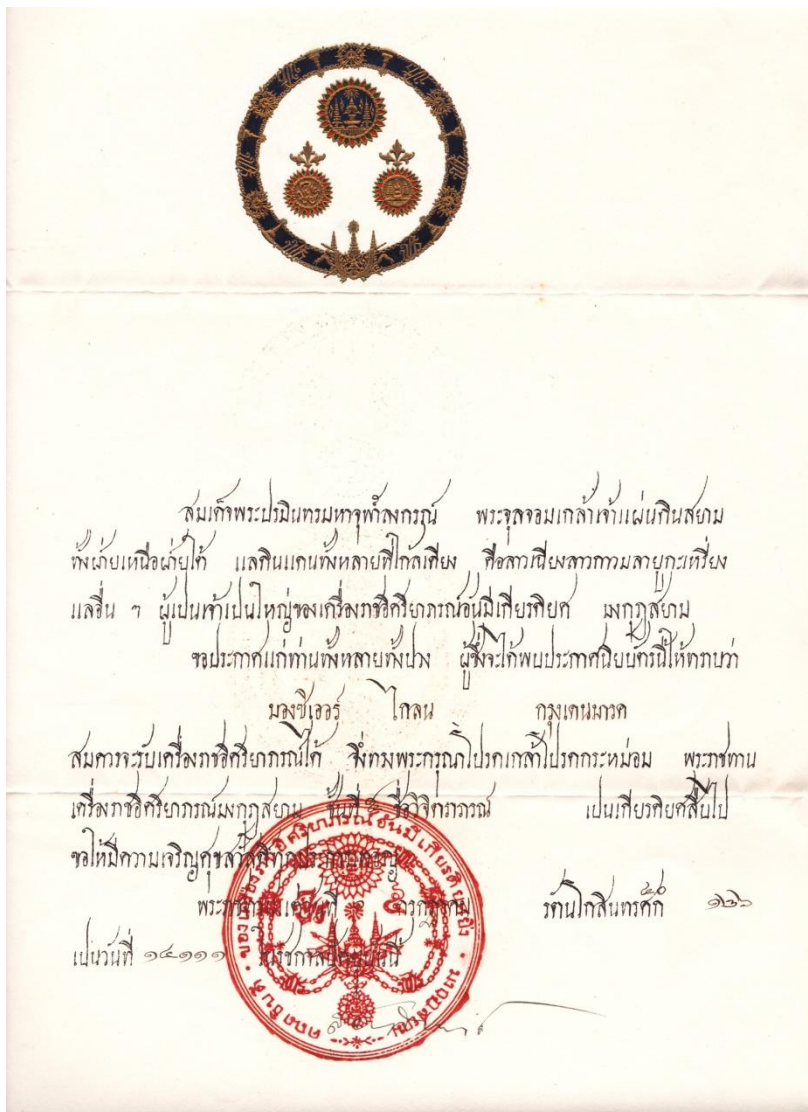 สมเด็จพระปรมินทรมหาจุฬาลงกรณ์ พระจุลจอมเกล้าเจ้าแผ่นดินสยาม
ทั้งฝ่ายเหนือฝ่ายใต้ แลดินแดนทั้งหลายที่ใกล้เคียง คือลาวเฉียงลาวกาวมลายูกะเหรี่ยง
แลอื่น ๆ ผู้เป็นเจ้าเป็นใหญ่ของเครื่องราชอิศริยาภรณ์อันมีเกียรติยศ มงกุฎสยาม
ขอประกาศแก่ท่านทั้งหลายทั้งปวง ผู้ซึ่งจะได้พบประกาศนียบัตรนี้ให้ทราบว่า
มองซิเออร์ ไกลน กรุงเดนมารค
สมควรจะรับเครื่องราชอิศริยาภรณ์ได้ จึ่งทรงพระกรุณาโปรดเกล้าโปรดกระหม่อม พระราชทาน
เครื่องราชอิศริยาภรณ์มงกุฎสยาม ชั้นที่ ชื่อวิจิตราภรณ์ เป็นเกียรติยศสืบไป
ขอให้มีความเจริญศุขสวัสดิ์
รัตนโกสินทรศก ๑๒๖
เป็นวันที่ ๑๔๑๑๑ ในรัชกาลปัจจุบันนี้